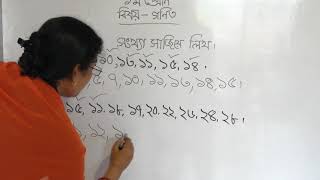 বিষয় – গণিত
সংখ্যা সাজিয়ে লিখ।
১০, ১৩, ১১, ১৫, ১৪।
৭, ১০, ১১, ১৩, ১৪, ১৫।
১৫, ১১, ১৮, ১৭, ২০, ২২, ২৬, ২৪, ২৮।
১২,